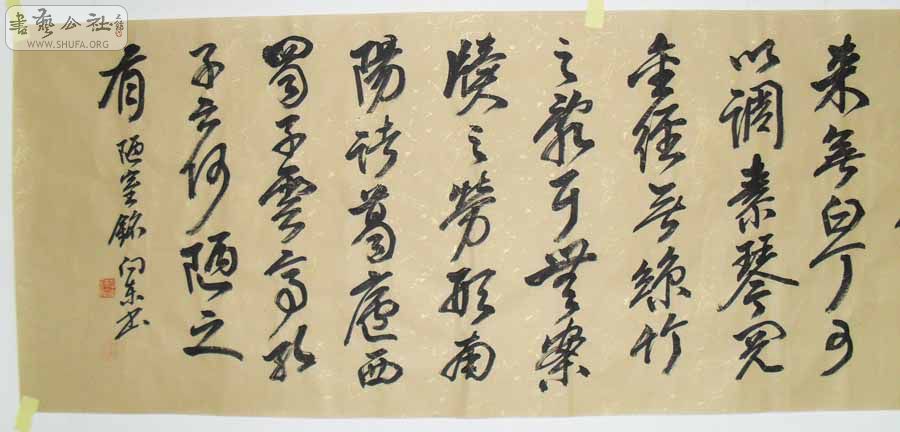 来無白丁可
以調素琴閱
金經無絲竹
之亂耳無案
牘之勞形南
陽諸葛廬西
蜀子雲亭孔
子云何陋之
有
陋室銘 向东书
書藝公社
WWW.SHUFA.ORG